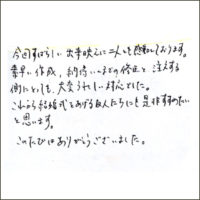 今回すばらしい出来映えに二人とも感動しております。
素早い作成、納得いくまでの修正と注文する
側にとても、大変うれしい対応でした。
これから結婚式をあげる友人たちにも是非すすめたい
と思います。
このたびはありがとうございました。